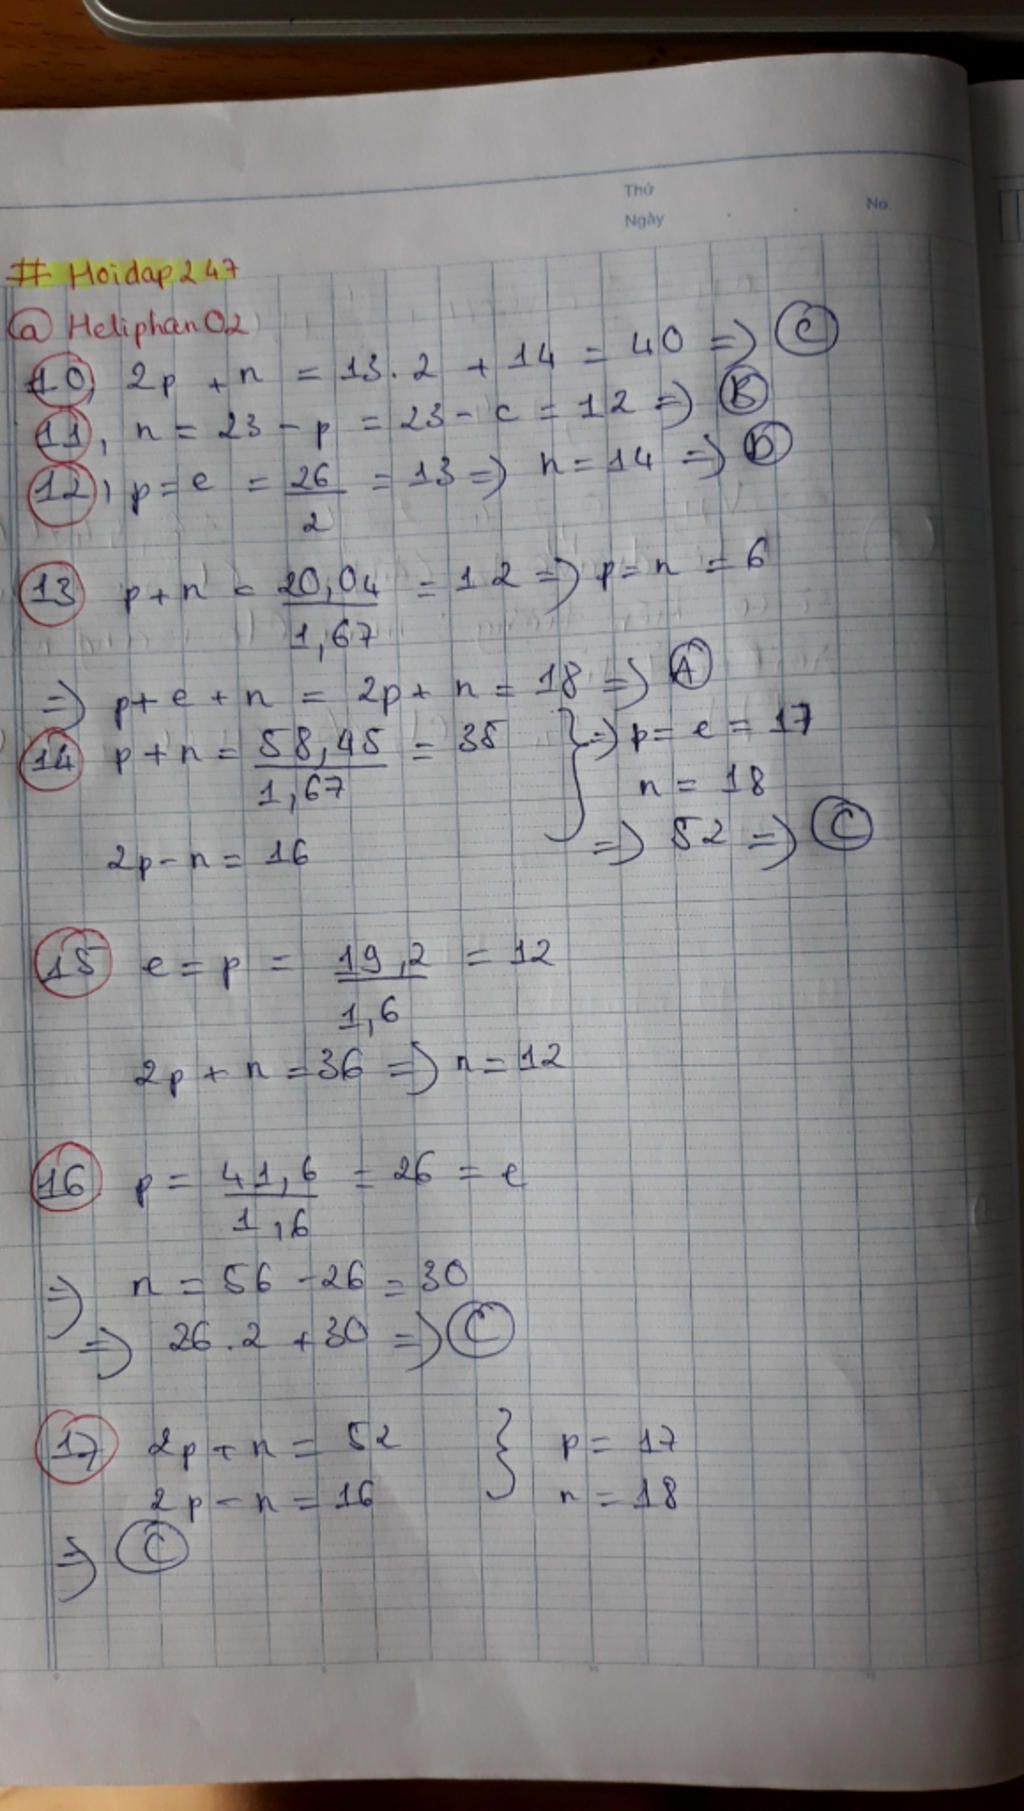 Thứ
Ngày
No.
# Hoidap247
@ Heliphan02
10, 2p + n = 13.2 + 14 = 40 => C
11, n = 23 - p = 23 - e = 12 => B
12, p = e = 26/2 = 13 => n = 14 => D
13 p + n = 20,04/1,67 = 12 => p = n = 6
=> p + e + n = 2p + n = 18 => A
14 p + n = 58,45/1,67 = 35 } => p = e = 17
n = 18
2p - n = 16 => 52 => C
15 e = p = 19,2/1,6 = 12
2p + n = 36 => n = 12
16 p = 41,6/1,6 = 26 = e
=> n = 56 - 26 = 30
=> 26.2 + 30 => C
17 2p + n = 52 } p = 17
2p - n = 16 n = 18
=> C